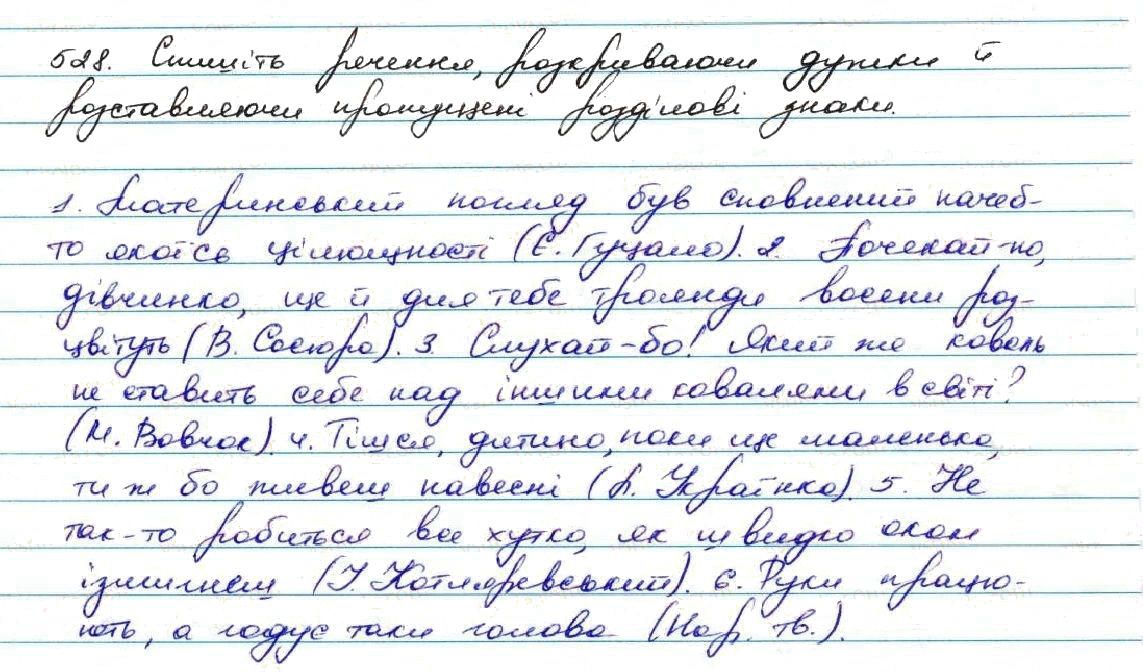 528. Спишіть речення, розкриваючи дужки й
розставляючи пропущені розділові знаки.
1. Материнський погляд був сповнений начеб-
то якоїсь цілющості (Є. Гуцало). 2. Почекай-но,
дівчинко, ще й для тебе троянди восени роз-
цвітуть (В. Сосюра). 3. Слухай-бо! Який же коваль
не ставить себе над іншими ковалями в світі?
(М. Вовчок). 4. Тішся, дитино, поки ще маленька,
ти ж бо живеш навесні (Л. Українка). 5. Не
так-то робиться все хутко, як швидко оком
ізмигнеш (І. Котляревський). 6. Руки працю-
ють, а годує таки голова (Нар. тв.).